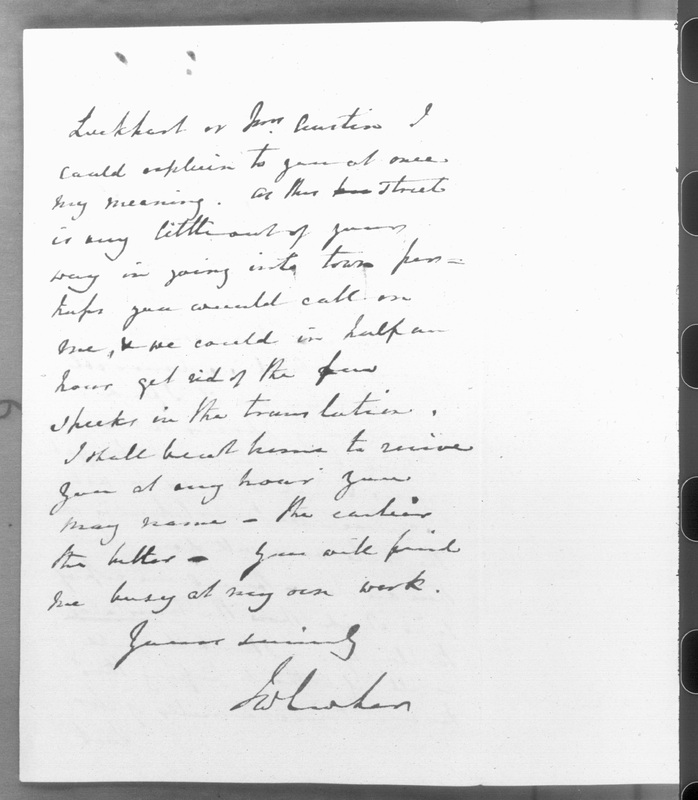 Lockhart or Mrs Austin I
could explain to you at once
my meaning. As this street
is very little out of your
way in going into town per=
haps you would call on
me, & we could in half an
hour get rid of the few
specks in the translation.
I shall be at home to receive
you at any hour you
may name – the earlier
the better – You will find
me busy at my own work.
Yours sincerely
JWCroker